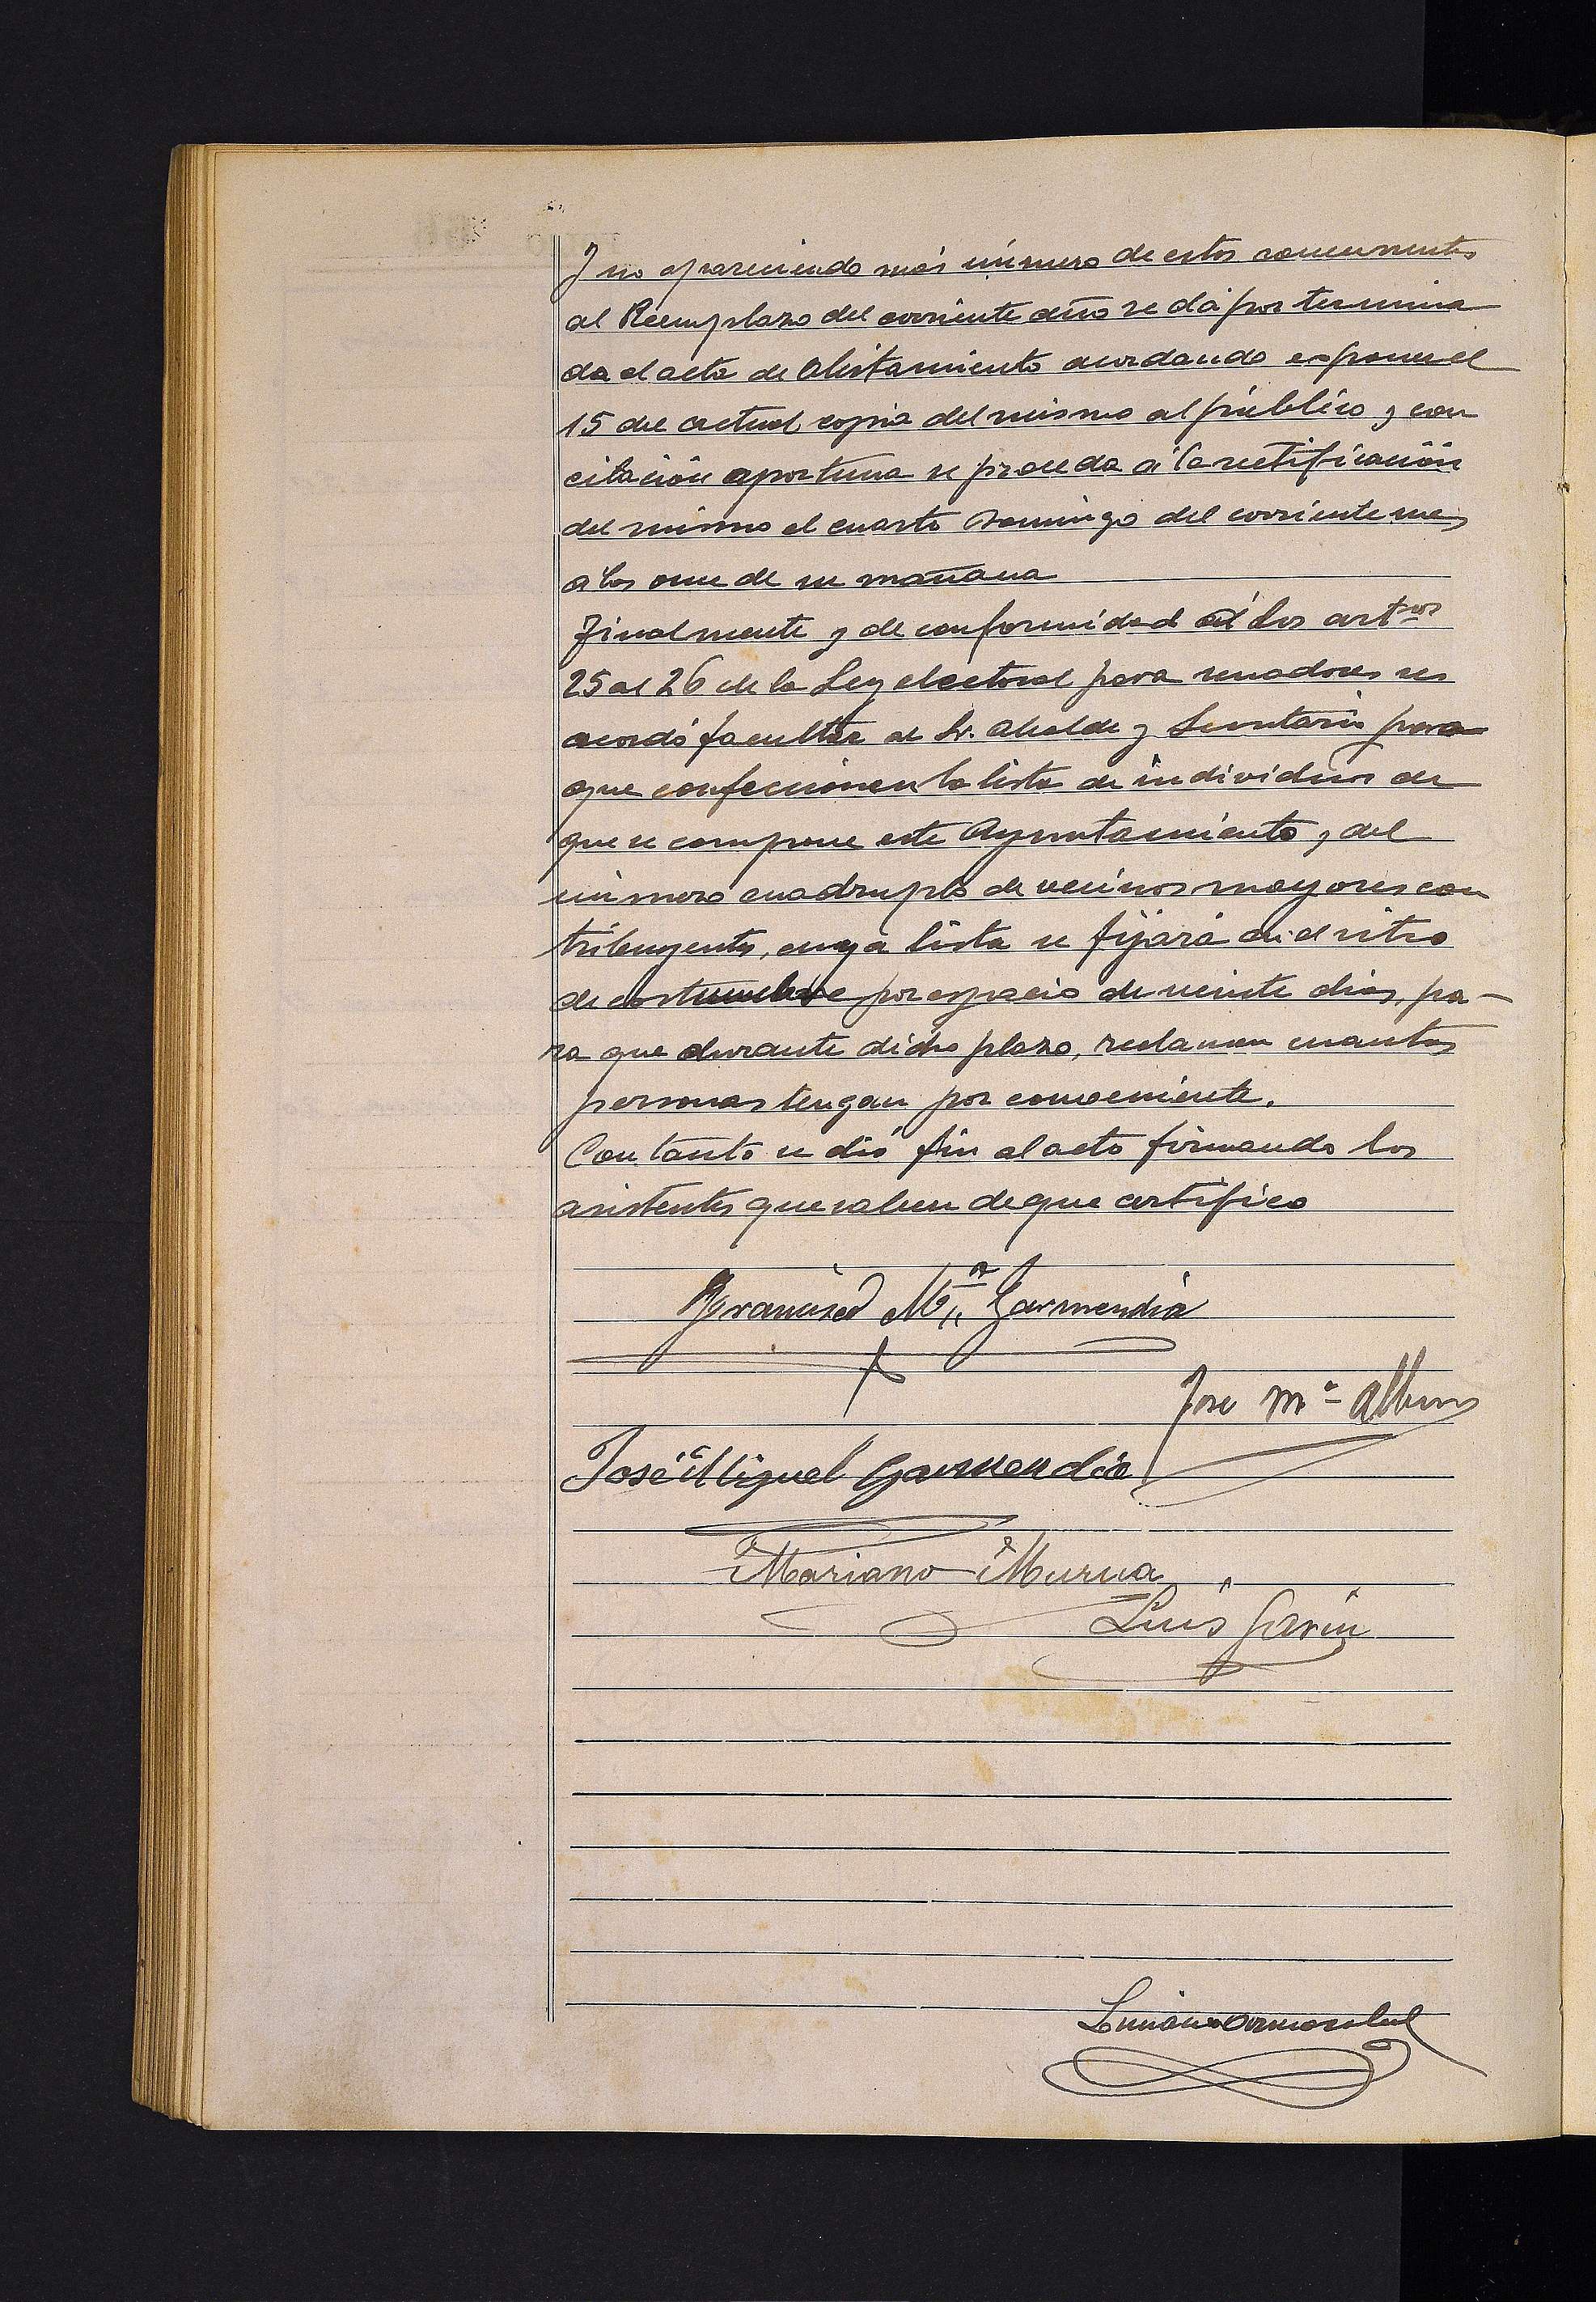 Y no apareciendo más número de estos concernentes
al Reemplazo del corriente año se dá por termina
do el acto de Alistamiento acordando exponer el
15 del actual copia del mismo al público y con
citación oportuna se proceda á la rectificación
del mismo el cuarto Domingo del corriente mes
á las once de su mañana
Finalmente y de conformidad á los artos
25 al 26 de la Ley electoral para senadores se
acordó facultar al Sr. Alcalde y Secretario para
que confeccionen la lista de individuos de
que se compone este Ayuntamiento y del
número cuadruplo de vecinos mayores con
tribuyentes, cuya lista se fijará en el sitio
de costumbre por espacio de veinte dias, pa-
ra que durante dicho plazo, reclamen cuantas
personas tengan por conveniente.
Con tanto se dió fin al acto firmando los
asistentes que saben de que certifico
Francisco Ma Garmendia
Jose Ma
José Miguel Garmendia
Mariano Murua
Luis Garin